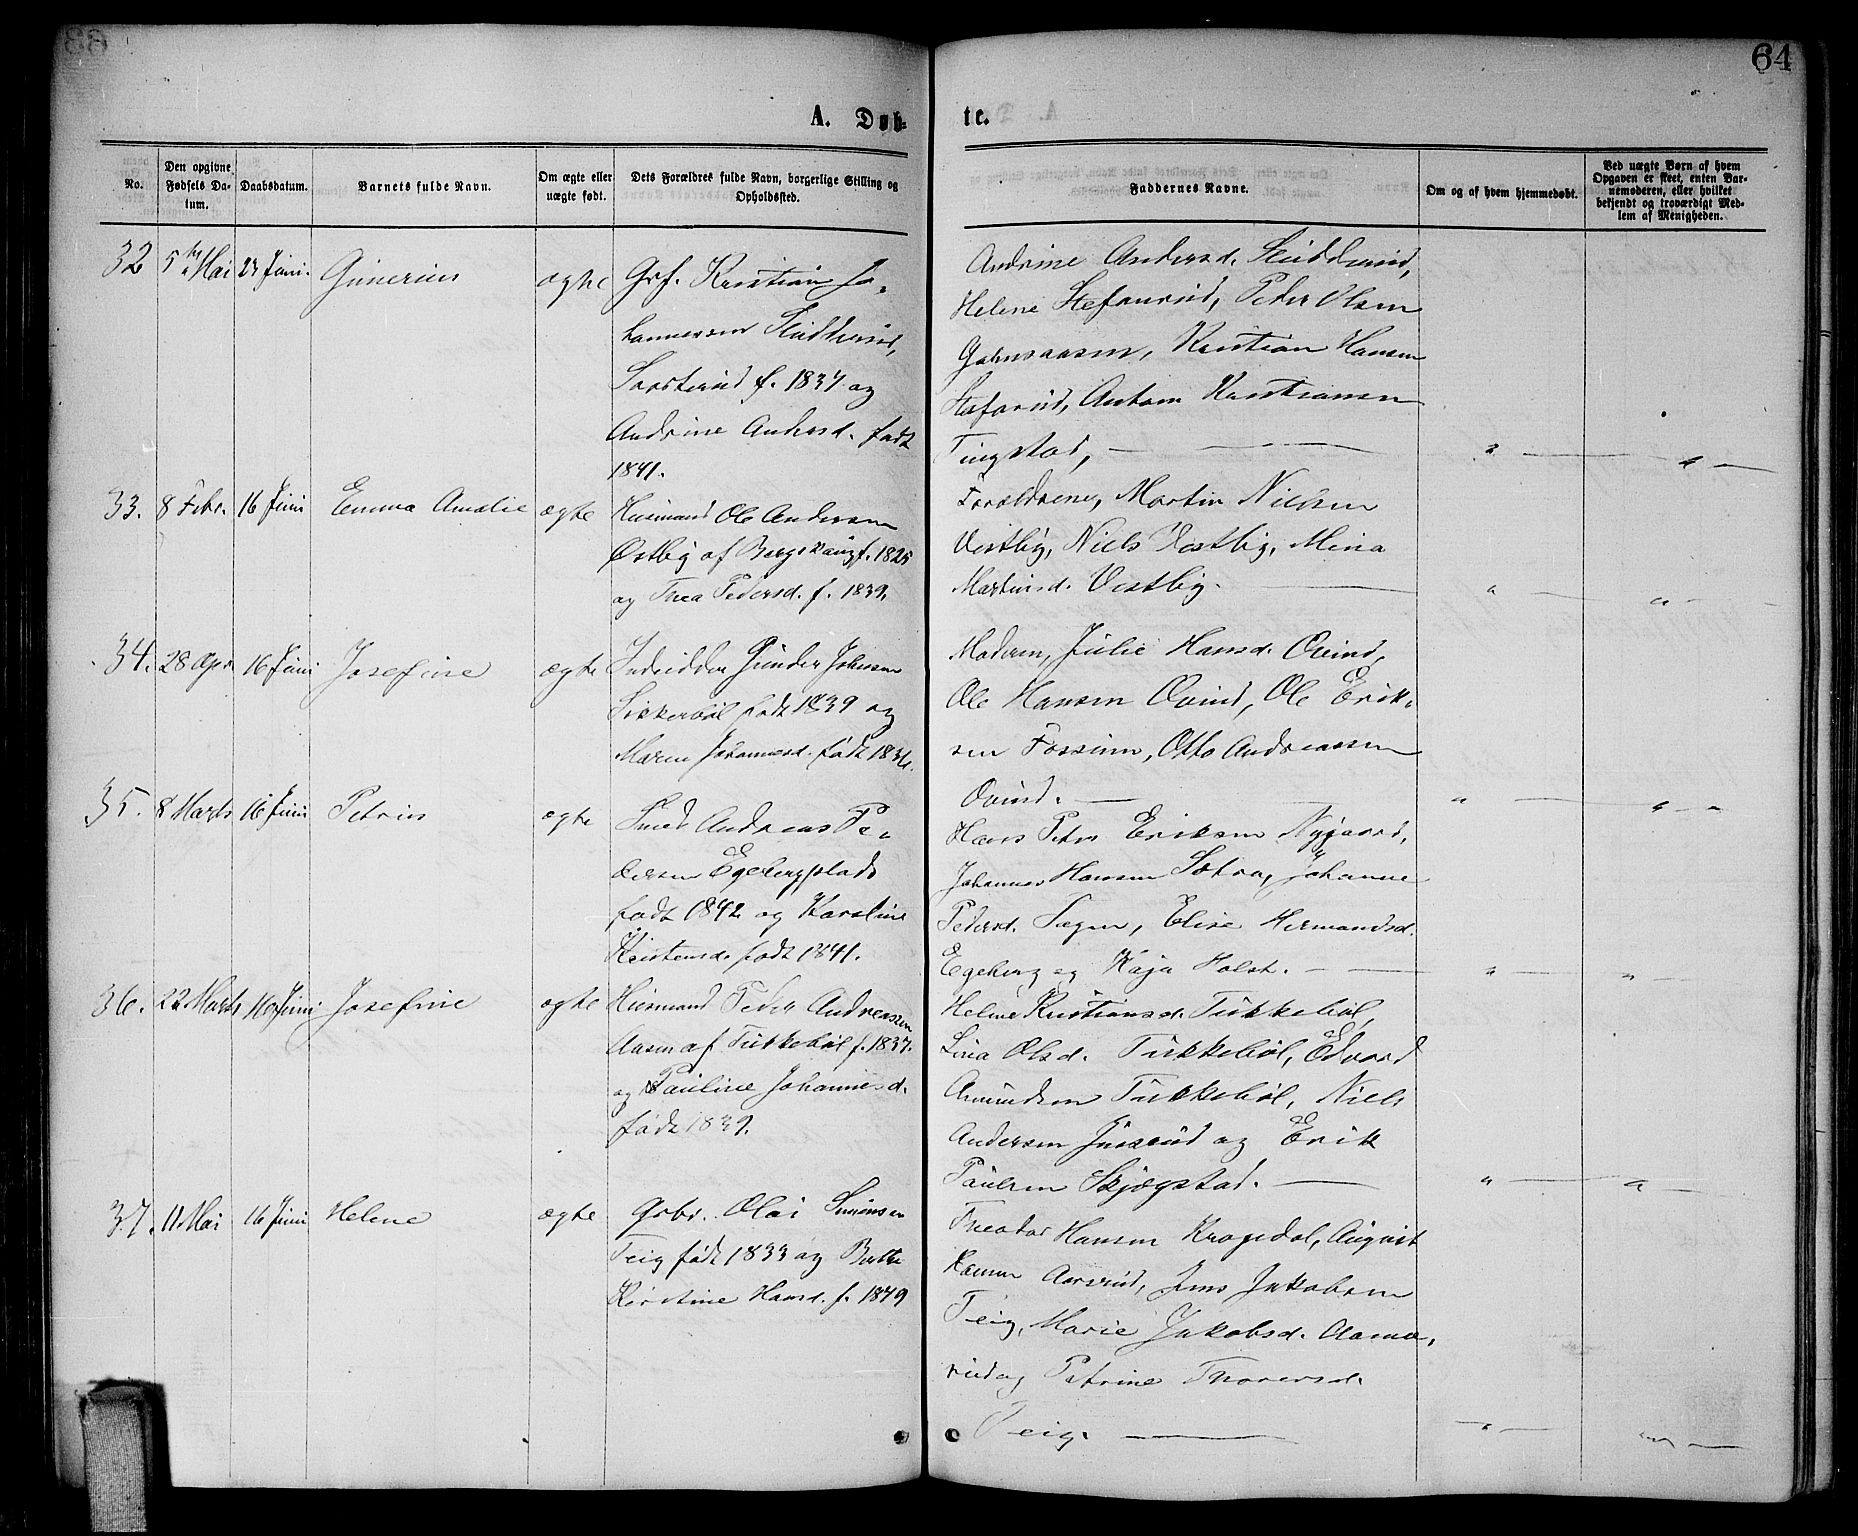 64
A. Døb-
te.
No.
Den opgivne Fødsels Datum.
Daabsdatum.
Barnets fulde Navn.
Om ægte eller uægte født.
Dets Forældres fulde Navn, borgerlige Stilling og Opholdssted.
Faddernes Navne.
Om og af hvem hjemmedøbt.
Ved uægte Børn af hvem Opgaven er skeet, enten Barnemoderen, eller hvilket bekjendt og troværdigt Medlem af Menigheden.
32 5te Mai 23 Juni. Gunerius ægte Gbf. Kristian Jo-
hannessen
f. 1837 og
Andrine Andersd. født
1841.
Andrine Andersd.
Helene Stefonrud, Peder Olsen
Kristian Hansen
Anton Kristiansen
Tingstad, —
33. 8 Febr. 16 Juni Emma Amalie ægte Husmand Ole Andersen
Østby af f. 1825
og Thea Pedersd. f. 1839.
Forældrene, Martin Nielsen
Vestby, Niels Vestby, Mina
Martinsd. Vestby.
34. 28 Apr. 16 Juni Josefine ægte Inderidder Gunder Johnsen
født 1839 og
Maren Johannesd. født 1834.
Moderen, Julie Hansd. Ovind,
Ole Hansen Ovind, Ole Erik-
sen Fossum, Otto Andreassen
Ovind. —
35. 8 Marts 16 Juni Petrus ægte Smed Andreas Pe-
dersen Egebergplads
født 1842 og Karoline
Kristensd. født 1841.
Hans Peter Eriksen Nygaard,
Johannes Hansen Sætra, Johanne
Pedersd. Elise Hermandsd.
Egeberg og Kaja Holst. —
36. 22 Marts 16 Juni Josefine ægte Husmand Peder Andreassen
Aasen af Tukkebøl f. 1837.
og Pauline Johannesd.
født 1839.
Helene Kristiansd. Tukkebøl,
Lina Olsd. Tukkebøl, Edvard
Amundsen Tukkebøl, Niels
Andersen og Erik
Paulsen Skjøgstad. —
37. 11. Mai 16 Juni Helene ægte Gbr. Olai Simensen
Teig født 1833 og Berthe
Kirstine Hansd. f. 1849
Theodor Hansen Krogsdal, August
Hansen Aarsrud, Jens Jakobsen
Teig, Marie Jakobsd. Aama-
rud og Petrine Thorersd.
Teig. —